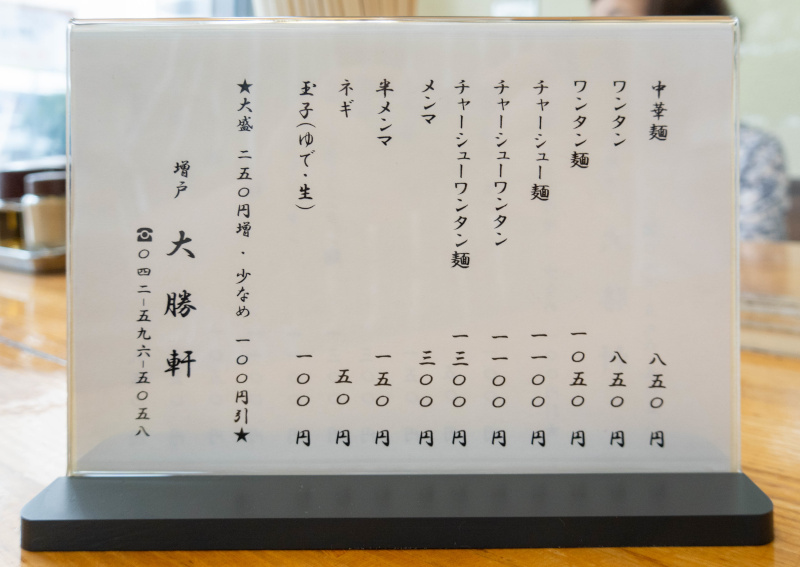 中華麺 八五〇円
ワンタン 八五〇円
ワンタン麺 一〇五〇円
チャーシュー麺 一一〇〇円
チャーシューワンタン 一一〇〇円
チャーシューワンタン麺 一三〇〇円
メンマ 三〇〇円
半メンマ 一五〇円
ネギ 五〇円
玉子(ゆで・生) 一〇〇円
★大盛 二五〇円増・少なめ 一〇〇円引★
増戸 大勝軒
☎〇四二−五九六−五〇五八